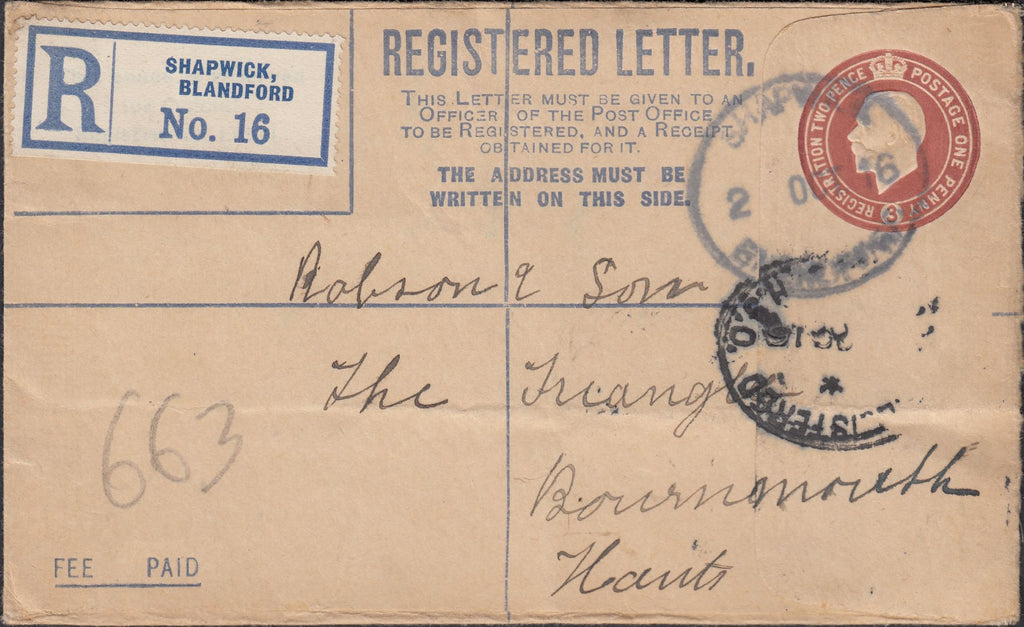 R
SHAPWICK,
BLANDFORD
No. 16
REGISTERED LETTER.
THIS LETTER MUST BE GIVEN TO AN
OFFICER OF THE POST OFFICE
TO BE REGISTERED, AND A RECEIPT
OBTAINED FOR IT.
THE ADDRESS MUST BE
WRITTEN ON THIS SIDE.
REGISTRATION TWO PENCE POSTAGE ONE PENNY
2 OCT 16
Robson & Son
The Triangle
Bournemouth
Hants
663
FEE PAID